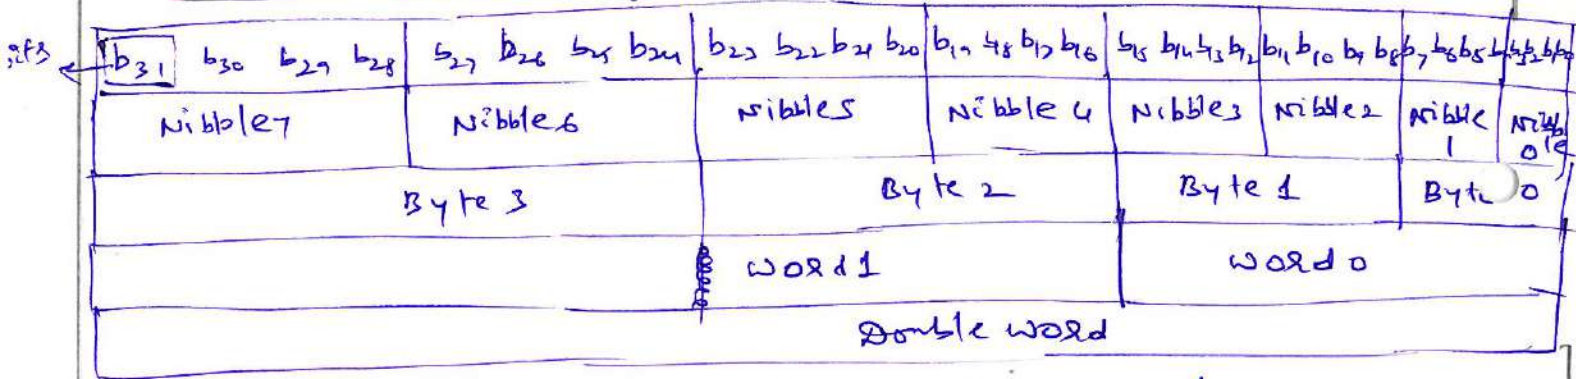 b31 b30 b29 b28 b27 b26 b25 b24 b23 b22 b21 b20 b19 b18 b17 b16 b15 b14 b13 b12 b11 b10 b9 b8 b7 b6 b5 b4 b3 b2 b1 b0
Nibble7 Nibble6 Nibble5 Nibble 4 Nibble3 Nibble2 Nibble 1 Nibble 0
Byte 3 Byte 2 Byte 1 Byte 0
word1 word0
Double word